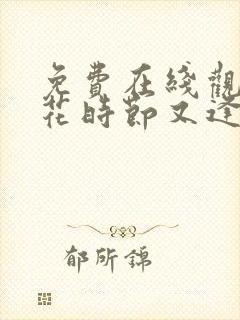 免費在綫觀
花時節又逢
郁所錦